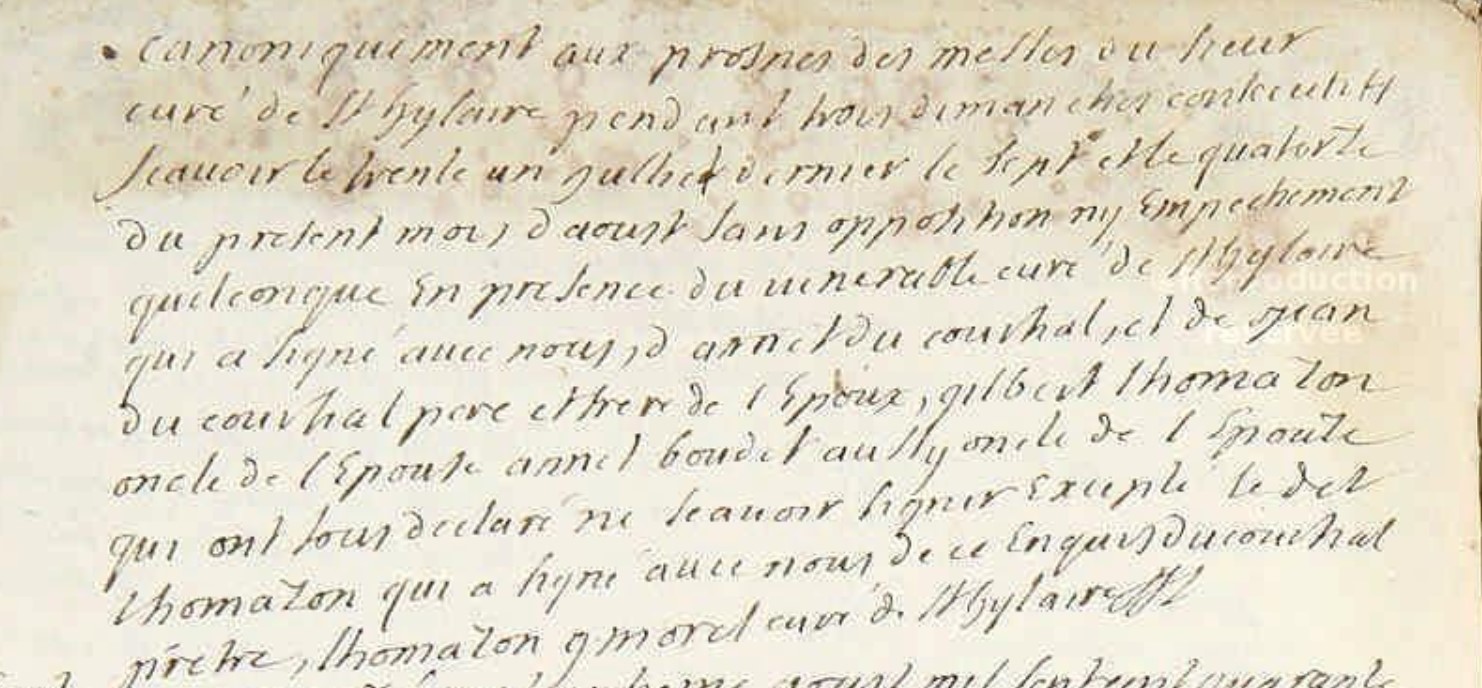 canoniquement aux prosnes des messes du sieur
curé de St hylaire pendant trois dimanches consecutifs
scavoir le trente un julliet dernier le sept et le quatorze
du present mois d'aoust sans opposition ny Empechement
quelconque En presence du venerable curé de St hylaire
qui a signé avec nous, d'annet du courthal, et de jean
du courthal pere et frere de l'Epoux, gilbert thomazon
oncle de l'Epouse annet boudet aussy oncle de l'Epouse
qui ont tous declaré ne scavoir signer Excepté le det
thomazon qui a signé avec nous de ce Enquis ducourthal
prêtre, thomazon g morel curé de St hylaire
aoust mil sept cent quarante